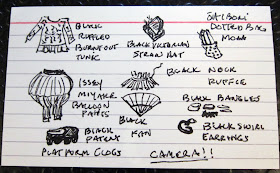 BLACK
RUFFLED
BURNOUT
TUNIC
BLACK VICTORIAN
STRAW HAT
SHIBORI
DOTTED BAG
MONA
ISSEY
MIYAKE
BALLOON
PANTS
BLACK
FAN
BLACK NECK
RUFFLE
BLACK BANGLES
BLACK SWIRL
EARRINGS
BLACK
PATENT
PLATFORM CLOGS
CAMERA!!